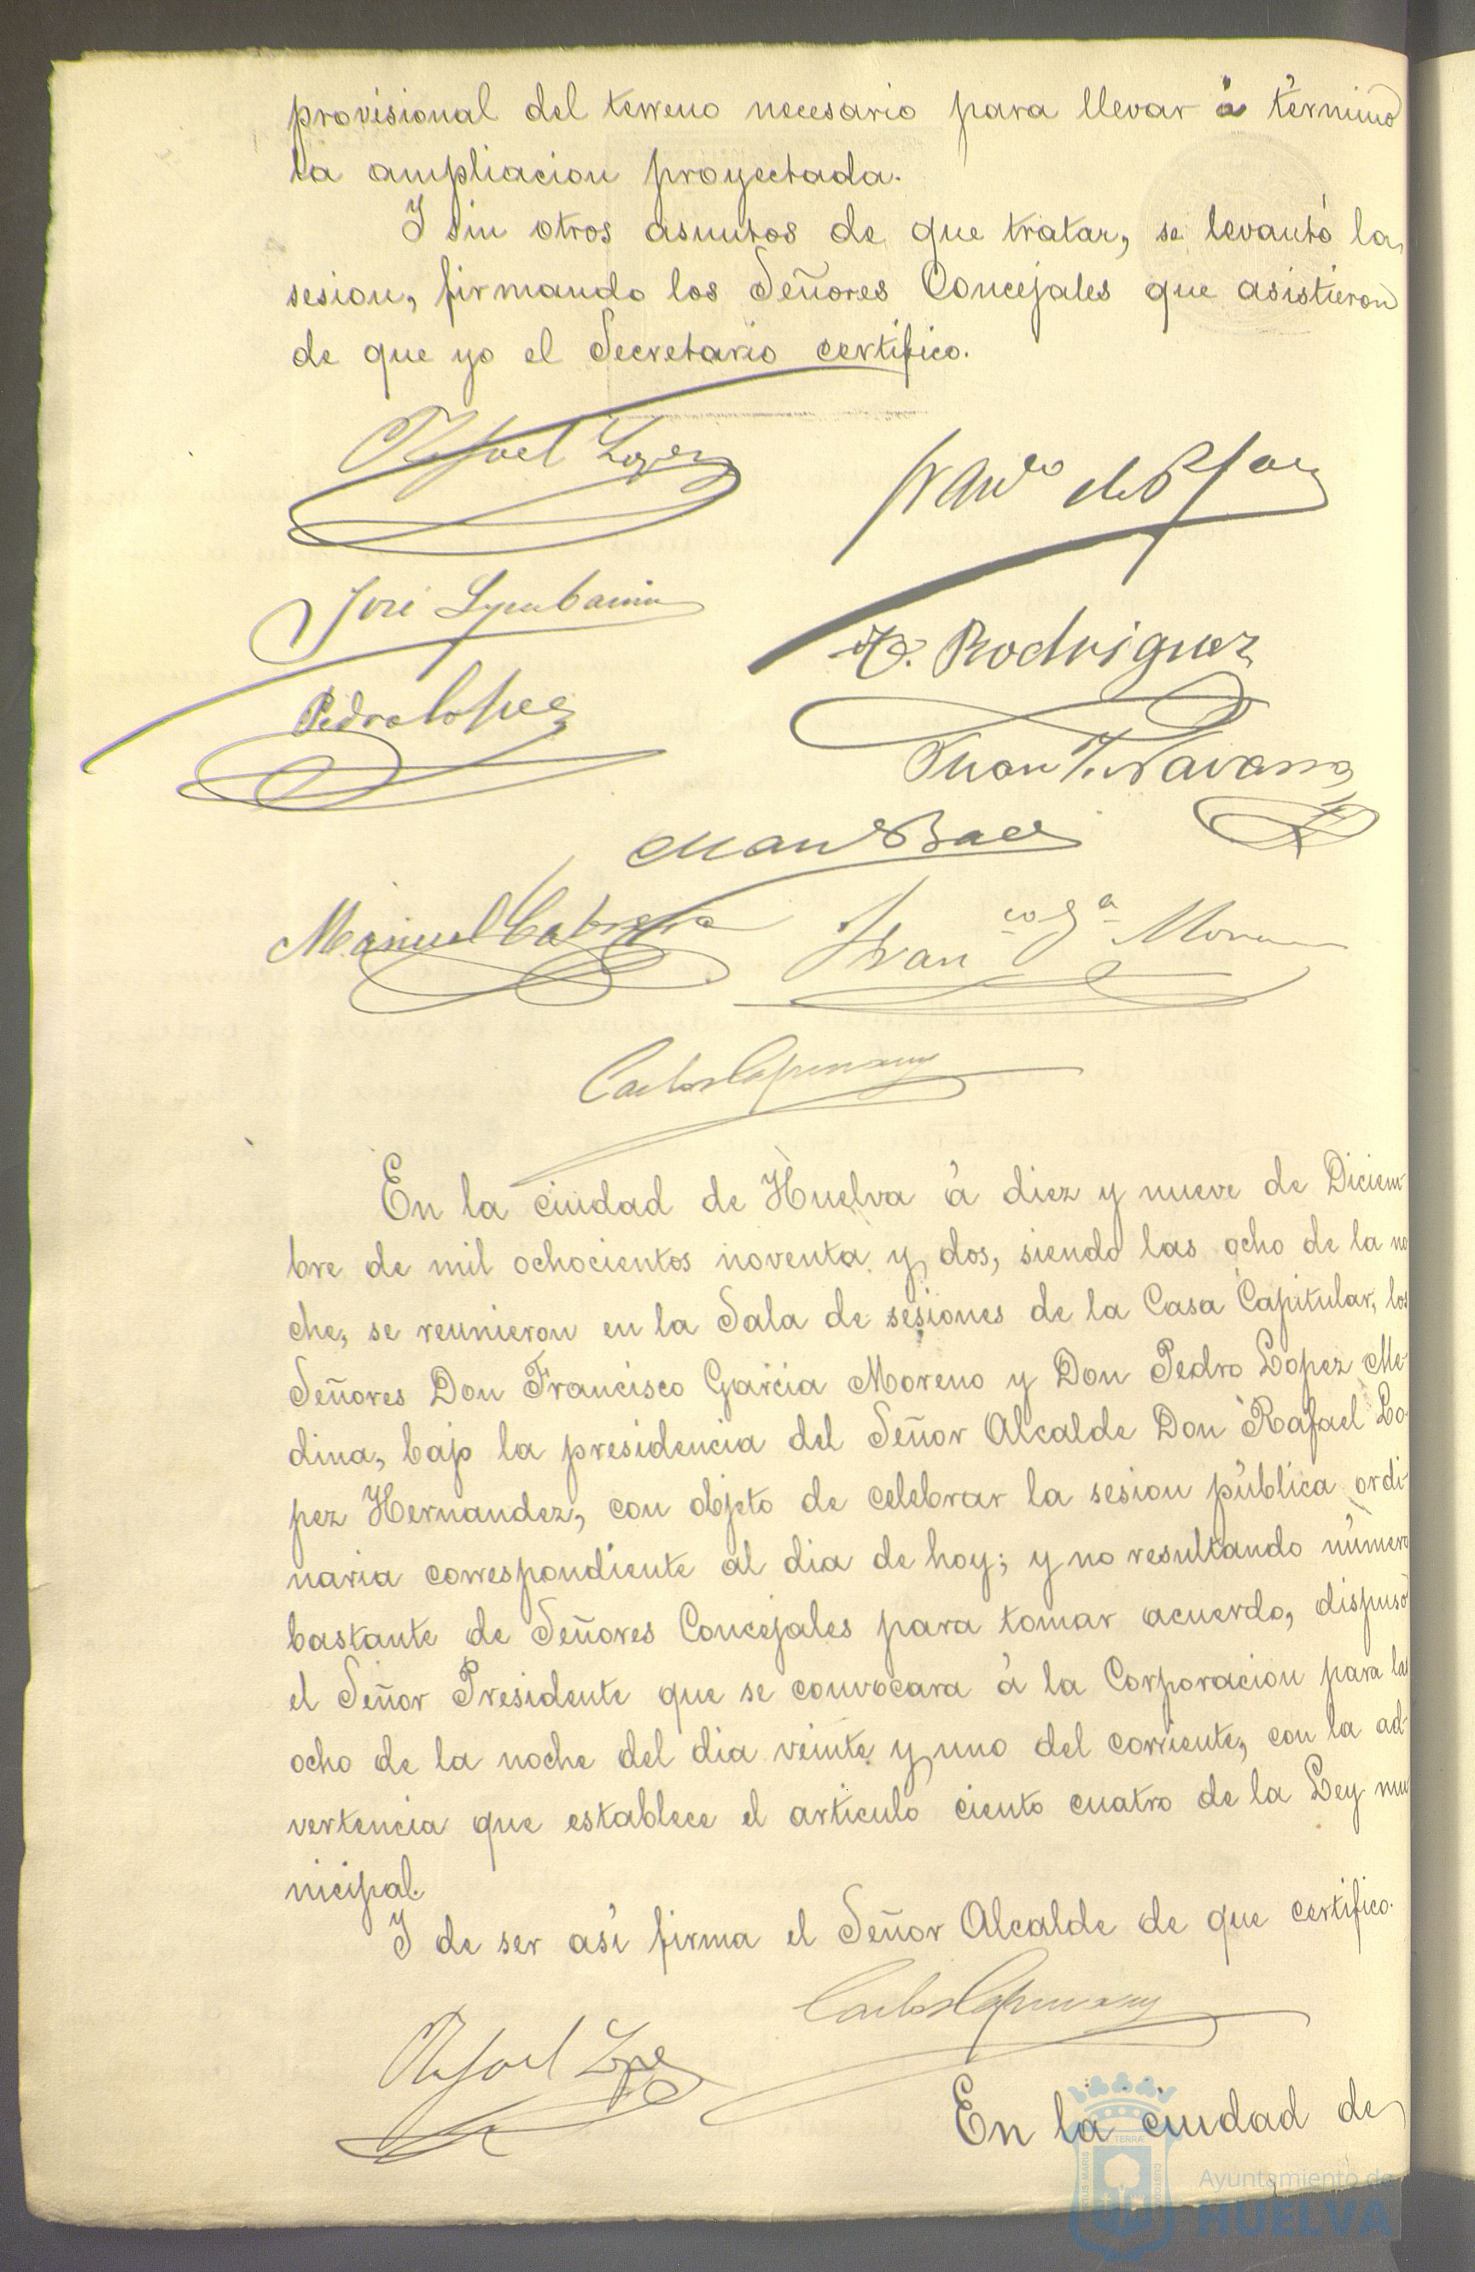 provisional del terreno necesario para llevar á término
la ampliacion proyectada.
Y sin otros asuntos de que tratar, se levantó la
sesion, firmando los Señores Concejales que asistieron
de que yo el Secretario certifico.
Rafael Lopez
Franco de P
José
H. Rodriguez
Pedro Lopez
Juan T. Navarro
Manl Baez
Manuel Cabrera
Franco Ga Moreno
Carlos
En la ciudad de Huelva á diez y nueve de Diciem-
bre de mil ochocientos noventa y dos, siendo las ocho de la no
che, se reunieron en la Sala de sesiones de la Casa Capitular, los
Señores Don Francisco Garcia Moreno y Don Pedro Lopez Me-
dina, bajo la presidencia del Señor Alcalde Don Rafael Lo-
pez Hernandez, con objeto de celebrar la sesion pública ordi-
naria correspondiente al dia de hoy; y no resultando número
bastante de Señores Concejales para tomar acuerdo, dispuso
el Señor Presidente que se convocara á la Corporacion para las
ocho de la noche del dia veinte y uno del corriente, con la ad-
vertencia que establece el artículo ciento cuatro de la Ley mu
nicipal.
Y de ser así firma el Señor Alcalde de que certifico.
Carlos
Rafael Lopez
En la ciudad de
Ayuntamiento de
HUELVA